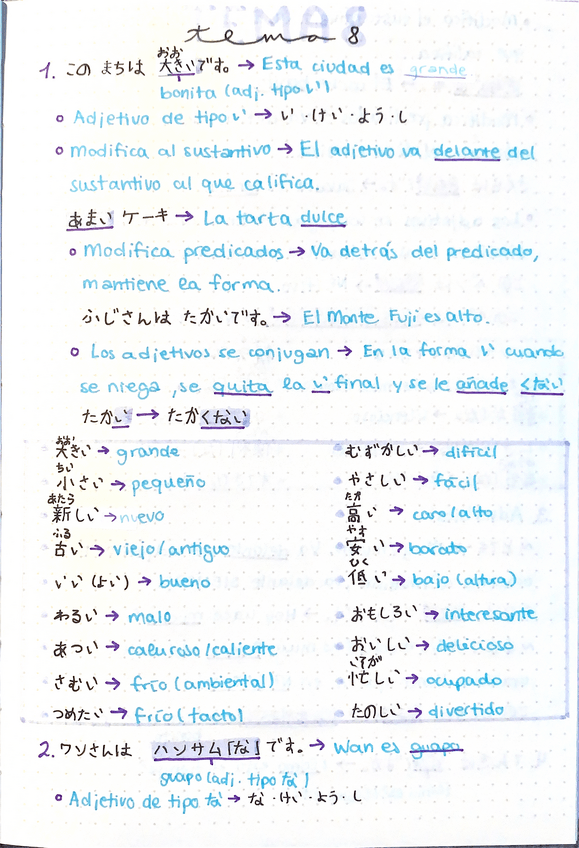 tema 8
おお
1. この まちは 大きいです。→ Esta ciudad es grande
bonita (adj. tipo い)
Adjetivo de tipo い → い・けい・よう・し
Modifica al sustantivo → El adjetivo va delante del
sustantivo al que califica.
あまい ケーキ → La tarta dulce
Modifica predicados → Va detrás del predicado,
mantiene la forma.
ふじさんは たかいです。→ El Monte Fuji es alto.
Los adjetivos se conjugan → En la forma い cuando
se niega, se quita la い final y se le añade くない
たかい → たかくない
おお
大きい → grande
ちい
小さい → pequeño
あたら
新しい → nuevo
ふる
古い → viejo/antiguo
いい (よい) → bueno
わるい → malo
あつい → caluroso/caliente
さむい → frío (ambiental)
つめたい → frío (tacto)
むずかしい → difícil
やさしい → fácil
たか
高い → caro/alto
やす
安い → barato
ひく
低い → bajo (altura)
おもしろい → interesante
おいしい → delicioso
いそが
忙しい → ocupado
たのしい → divertido
2. ワンさんは ハンサム[な]です。→ Wan es guapo
guapo (adj. tipo な)
Adjetivo de tipo な → な・けい・よう・し